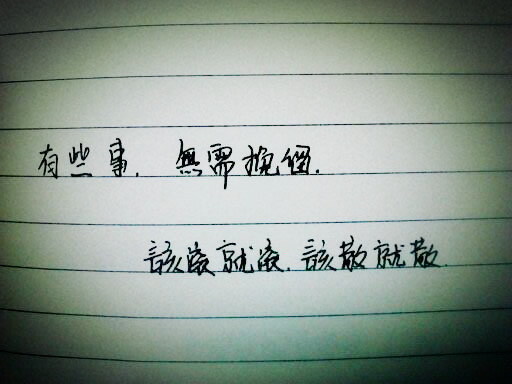 有些事. 無需挽徊.
該滚就滚. 該散就散.